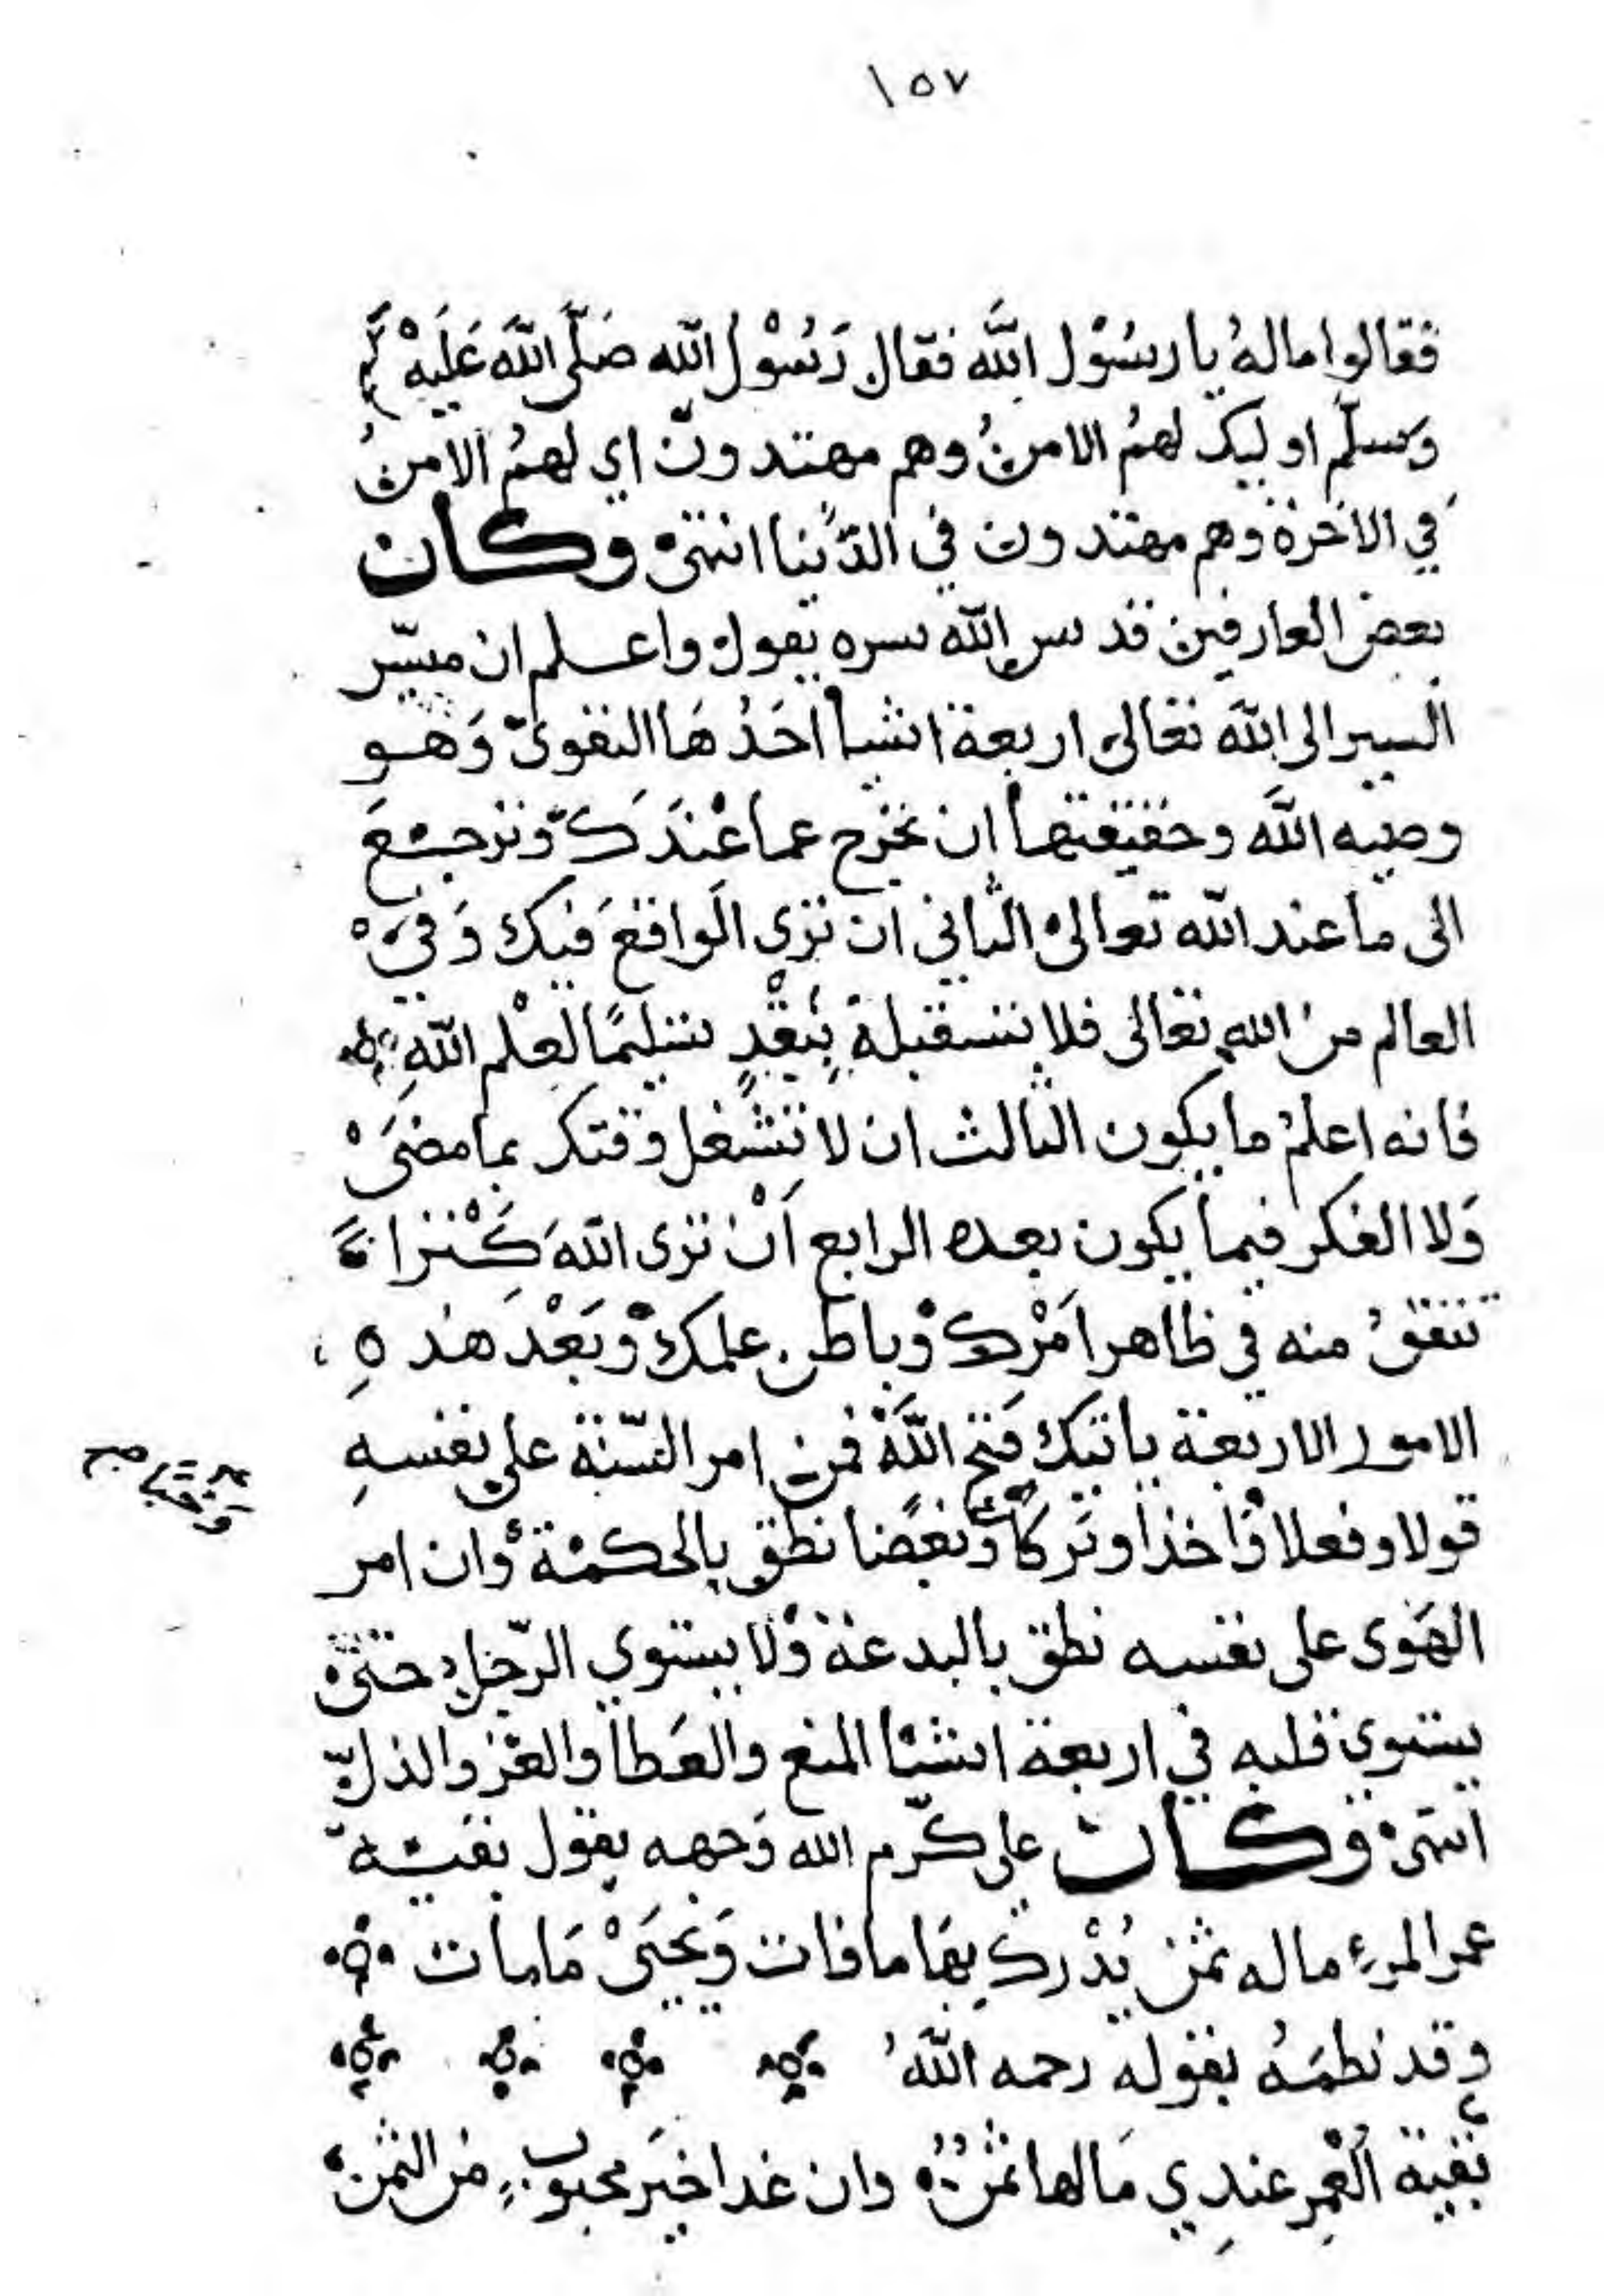 ١٥٧
فقالوا ماله يا رسول الله فقال رسول الله صلى الله عليه
وسلم اوليك لهم الامن وهم مهتدون اي لهم الامن
في الاخرة وهم مهتدون في الدنيا انتهى وكان
بعض العارفين قدس الله سره يقول واعلم ان ميسر
السير الى الله تعالى اربعة اشيا احدها التقوى وهو
وصيه الله وحقيقتها ان تخرج عما عندك وترجع
الى ما عند الله تعالى الثاني ان ترى الواقع فيك وفي
العالم من الله تعالى فلا تستقبله بنقد تسليما لعلم الله
فانه اعلم ما يكون الثالث ان لا تشغل وقتك بما مضى
ولا الفكر فيما يكون بعده الرابع ان ترى الله كنزا
تنفق منه في ظاهر امرك وباطن علمك وبعد هذه
الامور الاربعة ياتيك فتح الله فمن امر السنة على نفسه
قولا وفعلا واخذا وتركا وبغضا نطق بالحكمة وان امر
الهوى على نفسه نطق بالبدعة ولا يستوي الرجل حتى
يستوي قلبه في اربعة اشيا المنع والعطا والعز والذل
انتهى وكان علي كرم الله وجهه يقول بقية
عمر المرء ماله ثمن يدرك بها ما فات ويحيى ما مات
وقد نظمه بقوله رحمه الله
بقية العمر عندي مالها ثمن وان غدا خير محبوب من الثمن